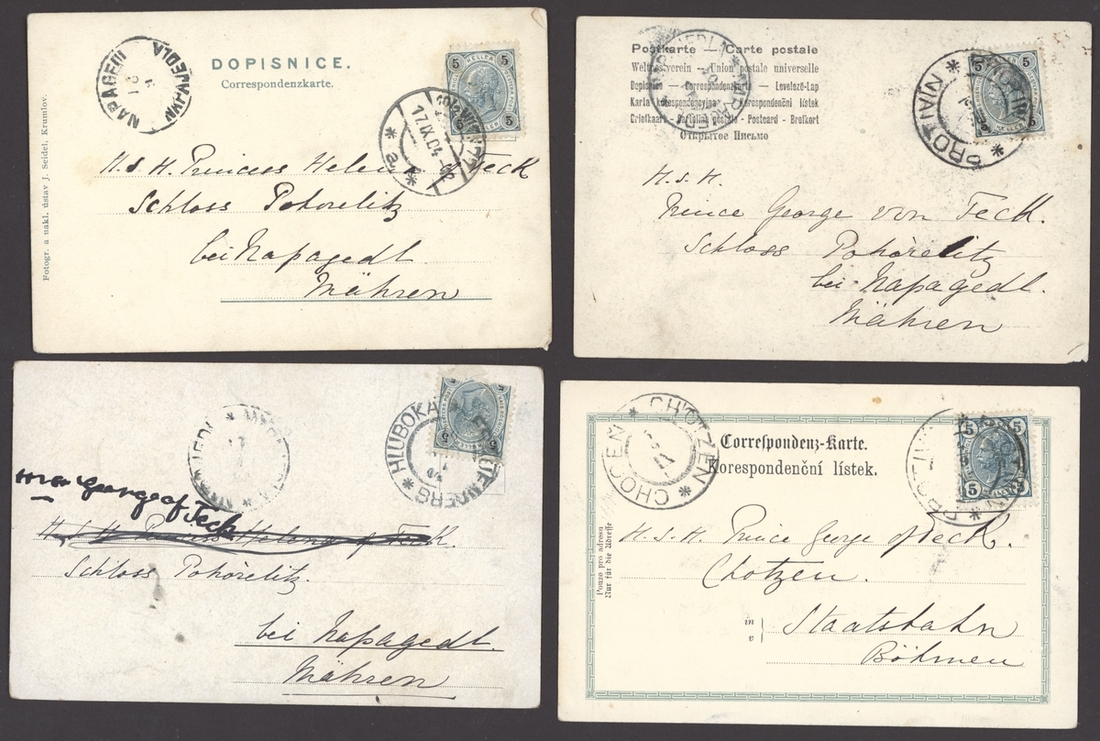 DOPISNICE.
Correspondenzkarte.
NAPAGEDL
17.IX.04
Fotogr. a nakl. ústav J. Seidel, Krumlov.
5 HELLER 5
H. S. H. Princess Helena of Teck
Schloss Pohořelitz
bei Napagedl
Mähren
Postkarte — Carte postale
Weltpostverein — Union postale universelle
Dopisnice — Correspondenzkarte — Levelező-Lap
Karta korespondencyjna — Korespondenční lístek
Briefkaart — Cartolina postale — Postcard — Brefkort
Открытое Письмо
PROTIVIN
5 5
H. S. H.
Prince George von Teck.
Schloss Pohořelitz
bei Napagedl.
Mähren
HLUBOKA
5 5
George of Teck
H. S. H. Princess Helena of Teck.
Schloss Pohořelitz.
bei Napagedl.
Mähren
CHOCEŇ * CHOTZEN *
Correspondenz-Karte.
Korespondenční lístek.
5 5
5 5
Pouze pro adresu
Nur für die Adresse
H. S. H. Prince George of Teck.
Chotzen.
in
v
Staatsbahn
Böhmen